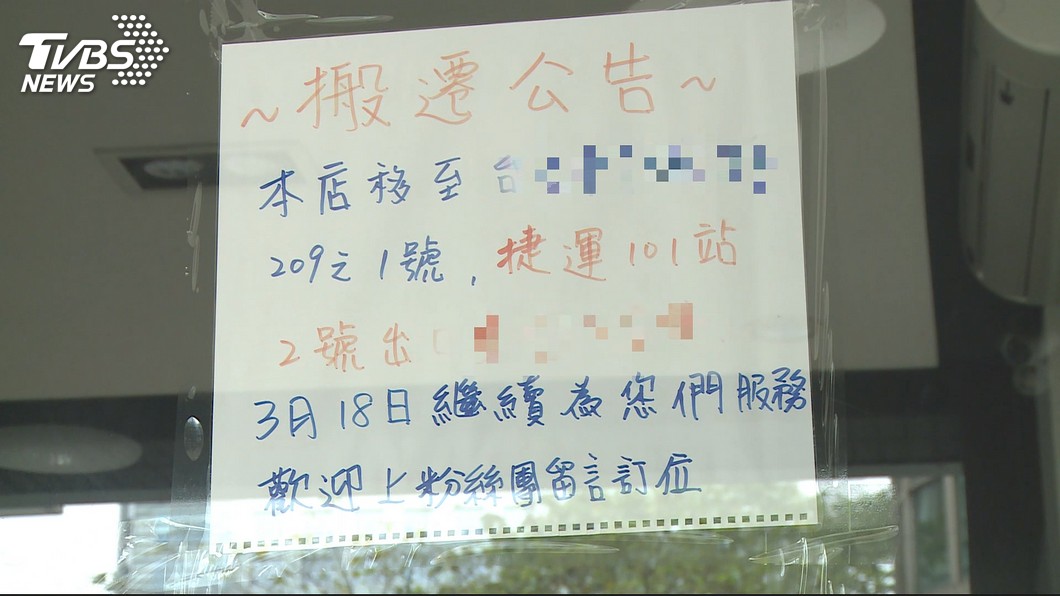 TVBS
NEWS
~搬遷公告~
本店移至台
209之1號,捷運101站
2號出
3月18日繼續為您們服務
歡迎上粉絲團留言訂位